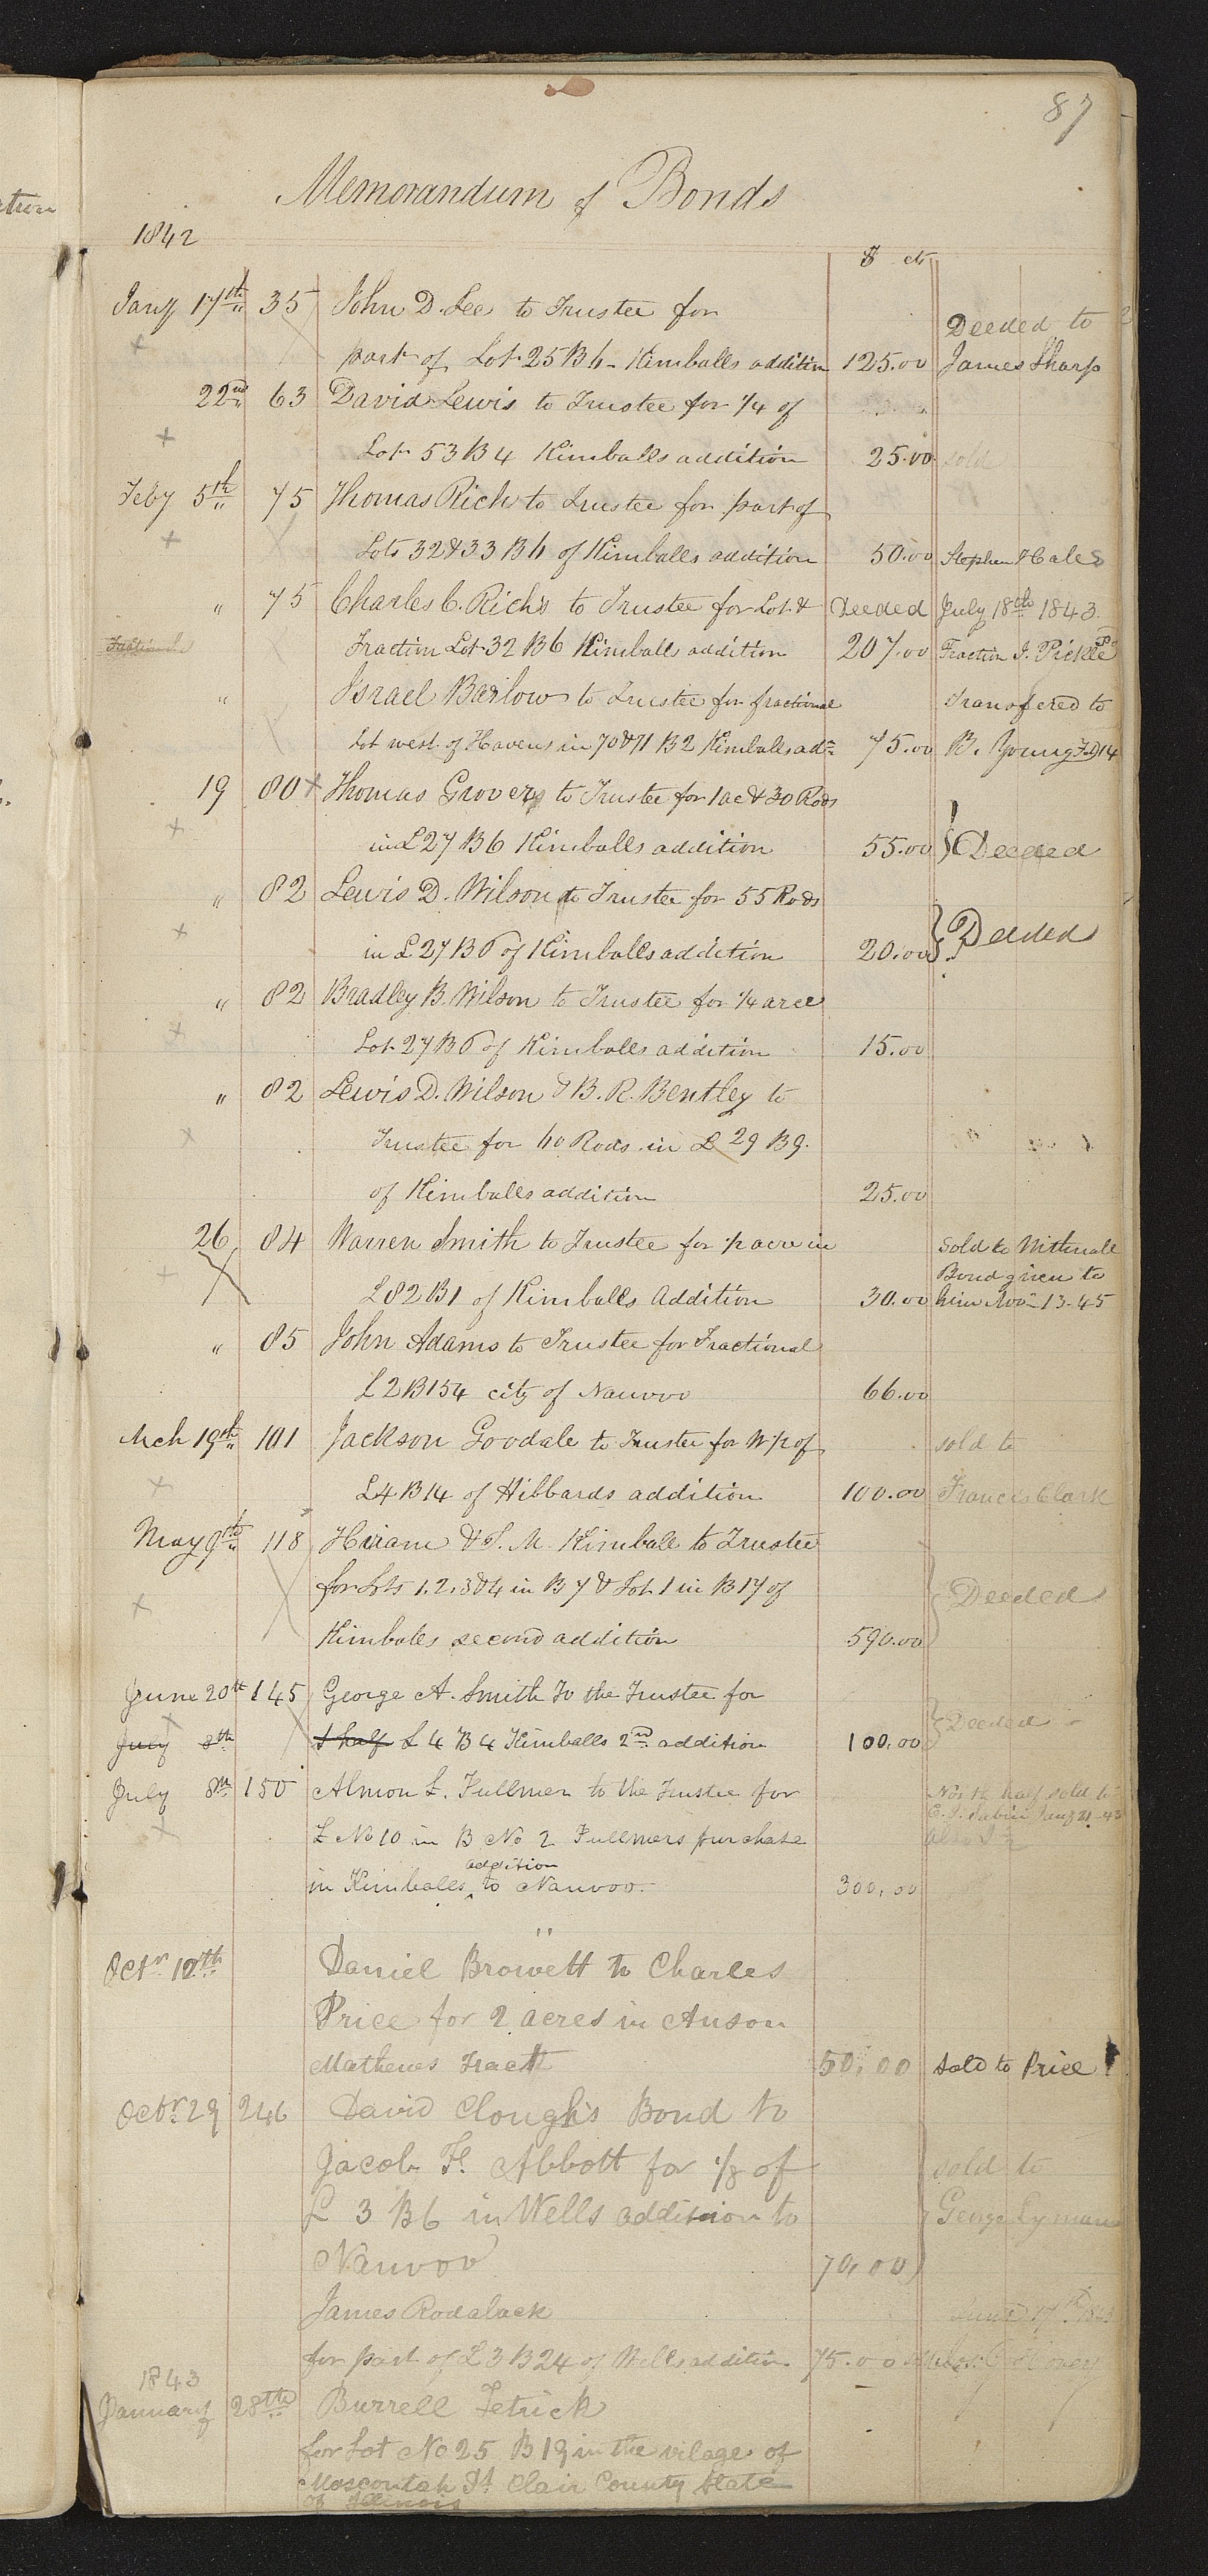 87
Memorandum of Bonds
1842
$ cts
Jany 17th 35 John D. Lee to Trustee for
Deeded to
part of Lot 25 B 6 Kimballs addition 125.00 James Sharp
22nd 63 David Lewis to Trustee for 1/4 of
Lot 53 B 4 Kimballs addition 25.00 sold
Feby 5th 75 Thomas Rich to Trustee for part of
Lots 32 & 33 B 6 of Kimballs addition 50.00 Stephen Hales
" 75 Charles C. Rich's to Trustee for Lot & Deeded July 18th 1843.
Fraction Lot 32 B 6 Kimballs addition 207.00 Fraction J. Pickle
" Israel Barlow to Trustee for fractional Transfered to
Lot west of Havens in 70 & 71 B 2 Kimballs adn 75.00 B. Young
19 80 + Thomas Grover to Trustee for 1 ac & 30 Rods
in L 27 B 6 Kimballs addition 55.00 } Deeded
" 82 Lewis D. Wilson to Trustee for 55 Rods
in L 27 B 6 of Kimballs addition 20.00 } Deeded
" 82 Bradley B. Wilson to Trustee for 1/4 acre
Lot 27 B 6 of Kimballs addition 15.00
" 82 Lewis D. Wilson & B. R. Bentley to
Trustee for 40 Rods in L 29 B 9.
of Kimballs addition 25.00
26 84 Warren Smith to Trustee for 1/2 acre in Sold to
Bond given to
L 82 B 1 of Kimballs Addition 30.00 him Nov 13-45
" 85 John Adams to Trustee for Fractional
L 2 B 154 city of Nauvoo 66.00
Mch 19th 101 Jackson Goodale to Trustee for W 1/2 of sold to
L 4 B 14 of Hibbards addition 100.00 Francis Clark
May 9th 118 Hiram & S. M. Kimball to Trustee
for Lots 1. 2. 3 & 4 in B 7 & Lot 1 in B 17 of } Deeded
Kimballs second addition 590.00
June 20th 145 George A. Smith To the Trustee for
July 8th 1 half L 4 B 4 Kimballs 2nd addition 100.00 } Deeded
July 8th 150 Almon L. Fullmer to the Trustee for North half sold to
L No 10 in B No 2 Fullmers purchase
in Kimballs addition to Nauvoo. 300.00
Octr 12th Daniel Browett to Charles
Price for 2 acres in Anson
Mathews Tract 50.00 sold to Price
Octr 29 246 David Clough's Bond to
Jacob F. Abbott for 1/8 of sold to
L 3 B 6 in Wells addition to George Lyman
Nauvoo 70.00
James Rodalack
for part of L 3 B 24 of Wells addition 75.00
1843
January 28th Burrell Tetrick
for Lot No 25 B 19 in the vilage of
Mascoutah St Clair County State
of Illinois